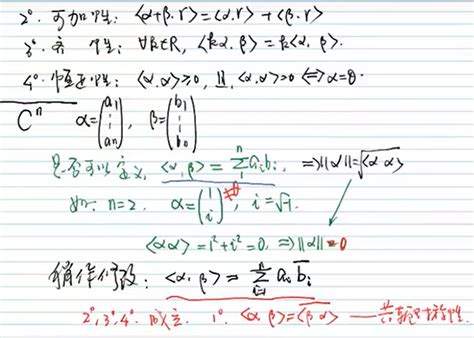 2° 可加性: <α+β,r>=<α,r>+<β,r>
3° 齐 性: ∀k∈R, <kα,β>=k<α,β>.
4° 恒正性: <α,α>≥0, 且 <α,α>=0 ⟺ α=θ.
C^n α=(a1 ⋮ an), β=(b1 ⋮ bn)
是否可以定义, <α,β>=∑_1^n aibi, ⇒||α||=√<α α>
如: n=2. α=(1 i)≠θ, i=√-1.
<α α>=1²+i²=0, ⇒||α||=0
稍作修改: <α,β>=∑_{i=1}^n ai b̅i
2°,3°,4° 成立. 1° <α,β>=<β,α>‾ —共轭对称性.